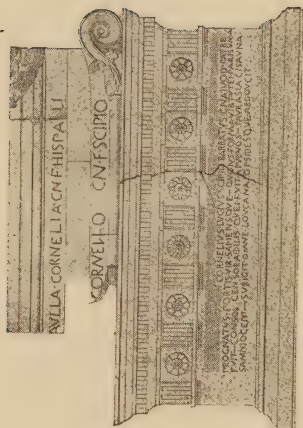 AVLLA·CORNELIA·CN·F·HISPALLI
CORNELIO CN·F·SCIPIO
CORNELIVS·LVCIVS·SCIPIO·BARBATVS·GNAIVOD·PATRE
PROGNATVS·FORTIS·VIR·SAPIENSQVE—QVOIVS·FORMA·VIRTVTEI·PARISVMA
FVIT—CONSOL CENSOR·AIDILIS·QVEI·FVIT·APVD·VOS—TAVRASIA·CISAVNA
SAMNIO·CEPIT—SVBIGIT·OMNE·LOVCANA·OPSIDESQVE·ABDOVCIT